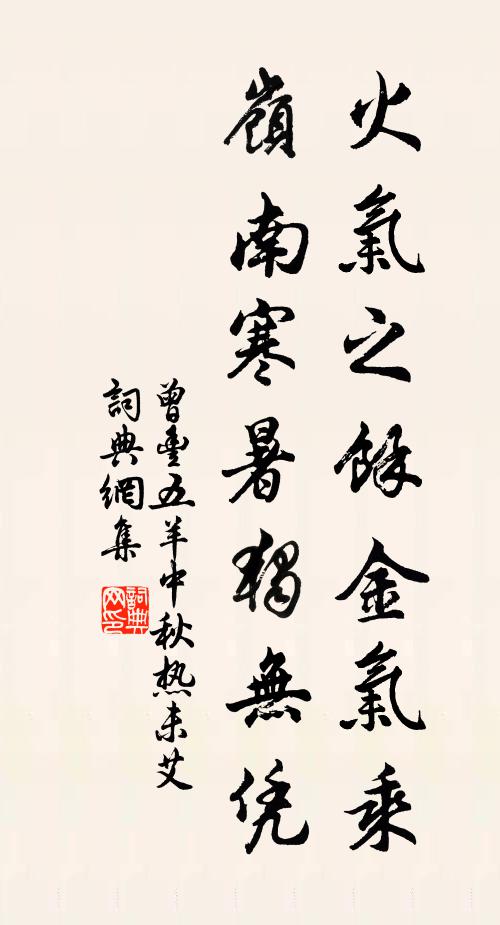 火氣之餘金氣乘
嶺南寒暑獨無凭
曾豐五羊中秋熱未艾
詞典網集
詞典网印